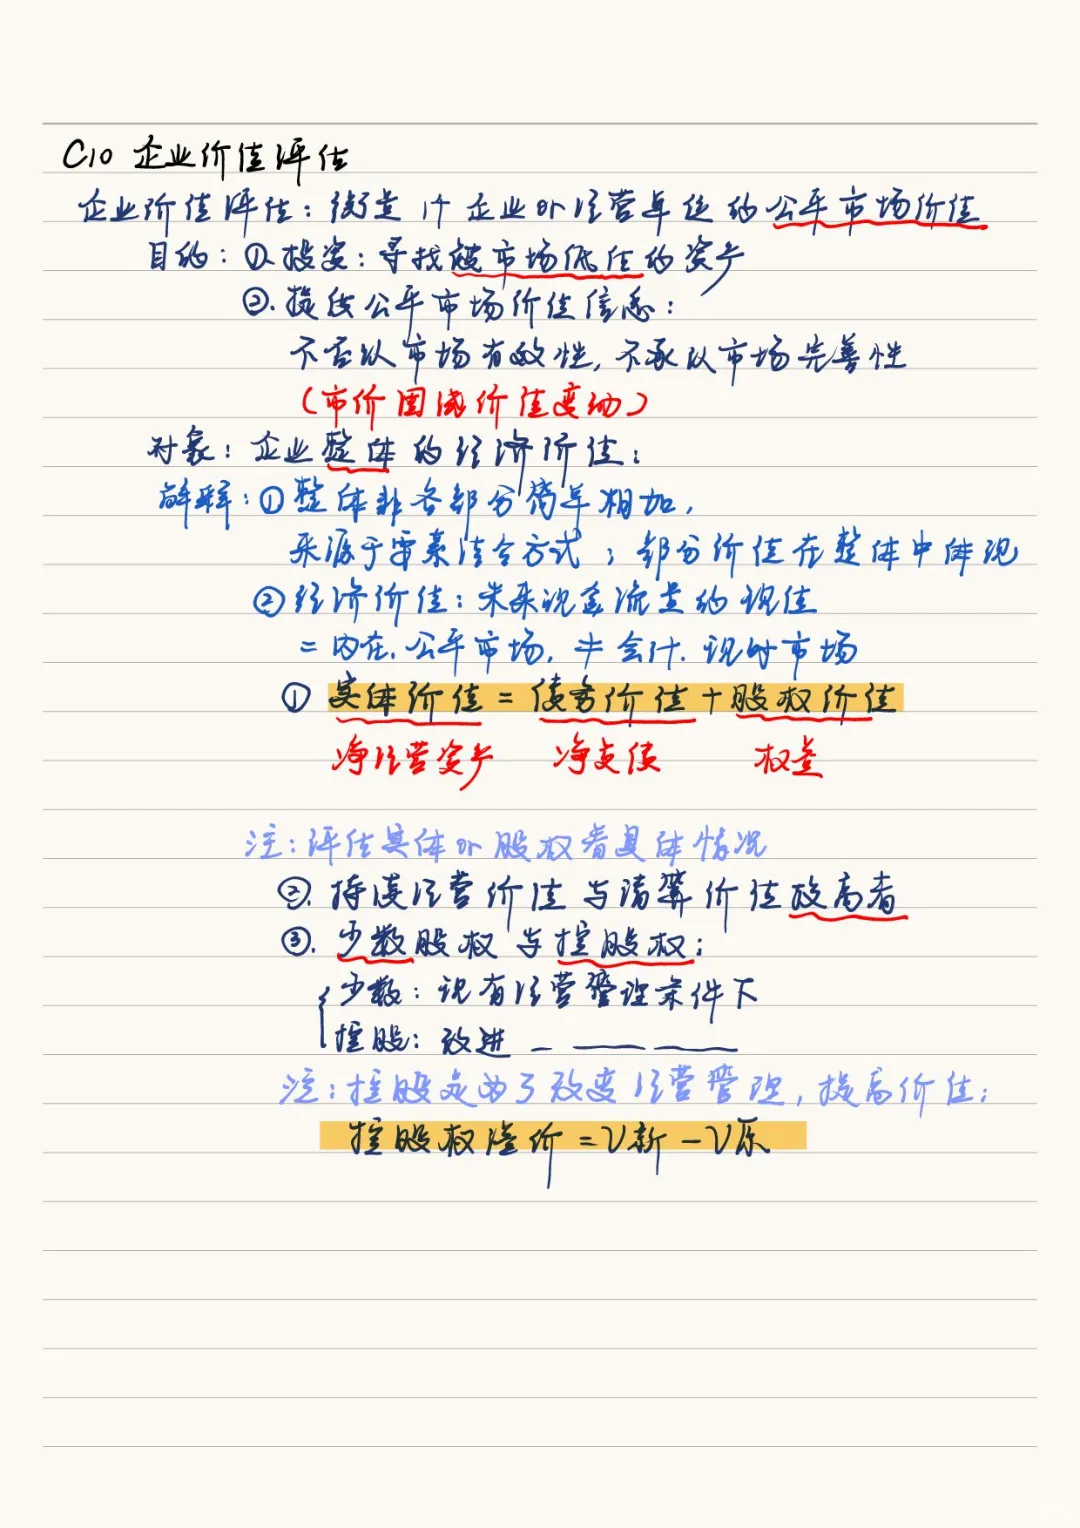 C10 企业价值评估
企业价值评估：衡量1个企业or经营单位的公平市场价值
目的：①.投资：寻找被市场低估的资产
②.提供公平市场价值信息：
不否认市场有效性，不承认市场完善性
（市价围绕价值变动）
对象：企业整体的经济价值；
解释：①整体非各部分简单相加，
来源于要素结合方式；部分价值在整体中体现
②经济价值：未来现金流量的现值
=内在.公平市场，≠会计.现时市场
① 实体价值=债务价值+股权价值
净经营资产 净负债 权益
注：评估实体or股权看具体情况
②.持续经营价值与清算价值较高者
③.少数股权与控股权；
少数：现有经营管理条件下
控股：改进 — —— ——
注：控股是为了改变经营管理，提高价值；
控股权溢价=V新-V原